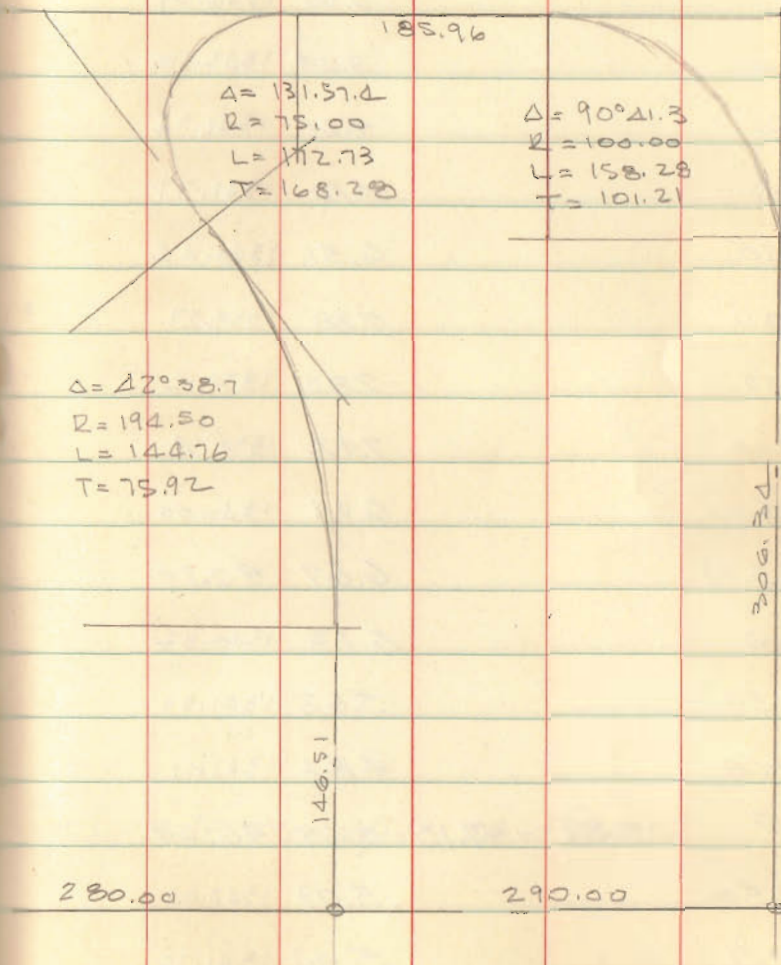 185.96
Δ= 131.57.4
R= 75.00
L= 172.73
T= 168.28
Δ= 90°41.3
R= 100.00
L= 158.28
T= 101.21
Δ= 42°38.7
R= 194.50
L= 144.76
T= 75.92
306.34
146.51
280.00
290.00